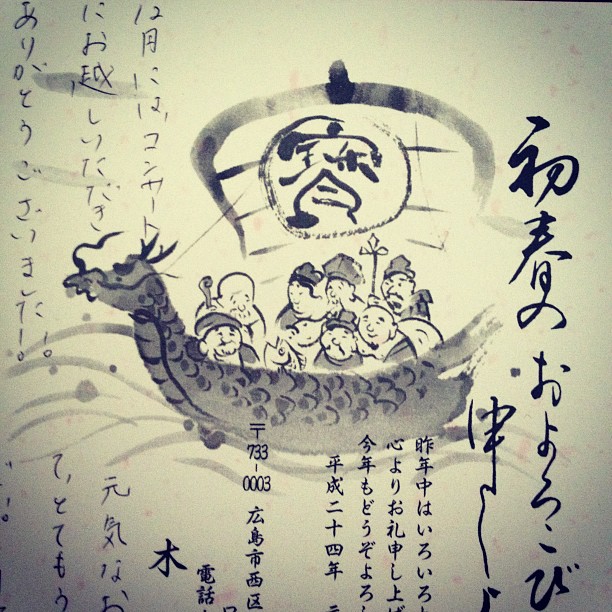 初春のおよろこび
申し
昨年中はいろいろ
心よりお礼申し上げ
今年もどうぞよろし
平成二十四年 元
〒733-0003 広島市西区
電話
木
寳
12月には、コンサート
にお越しいただき
ありがとうございました!。
元気なお
て、とてもう